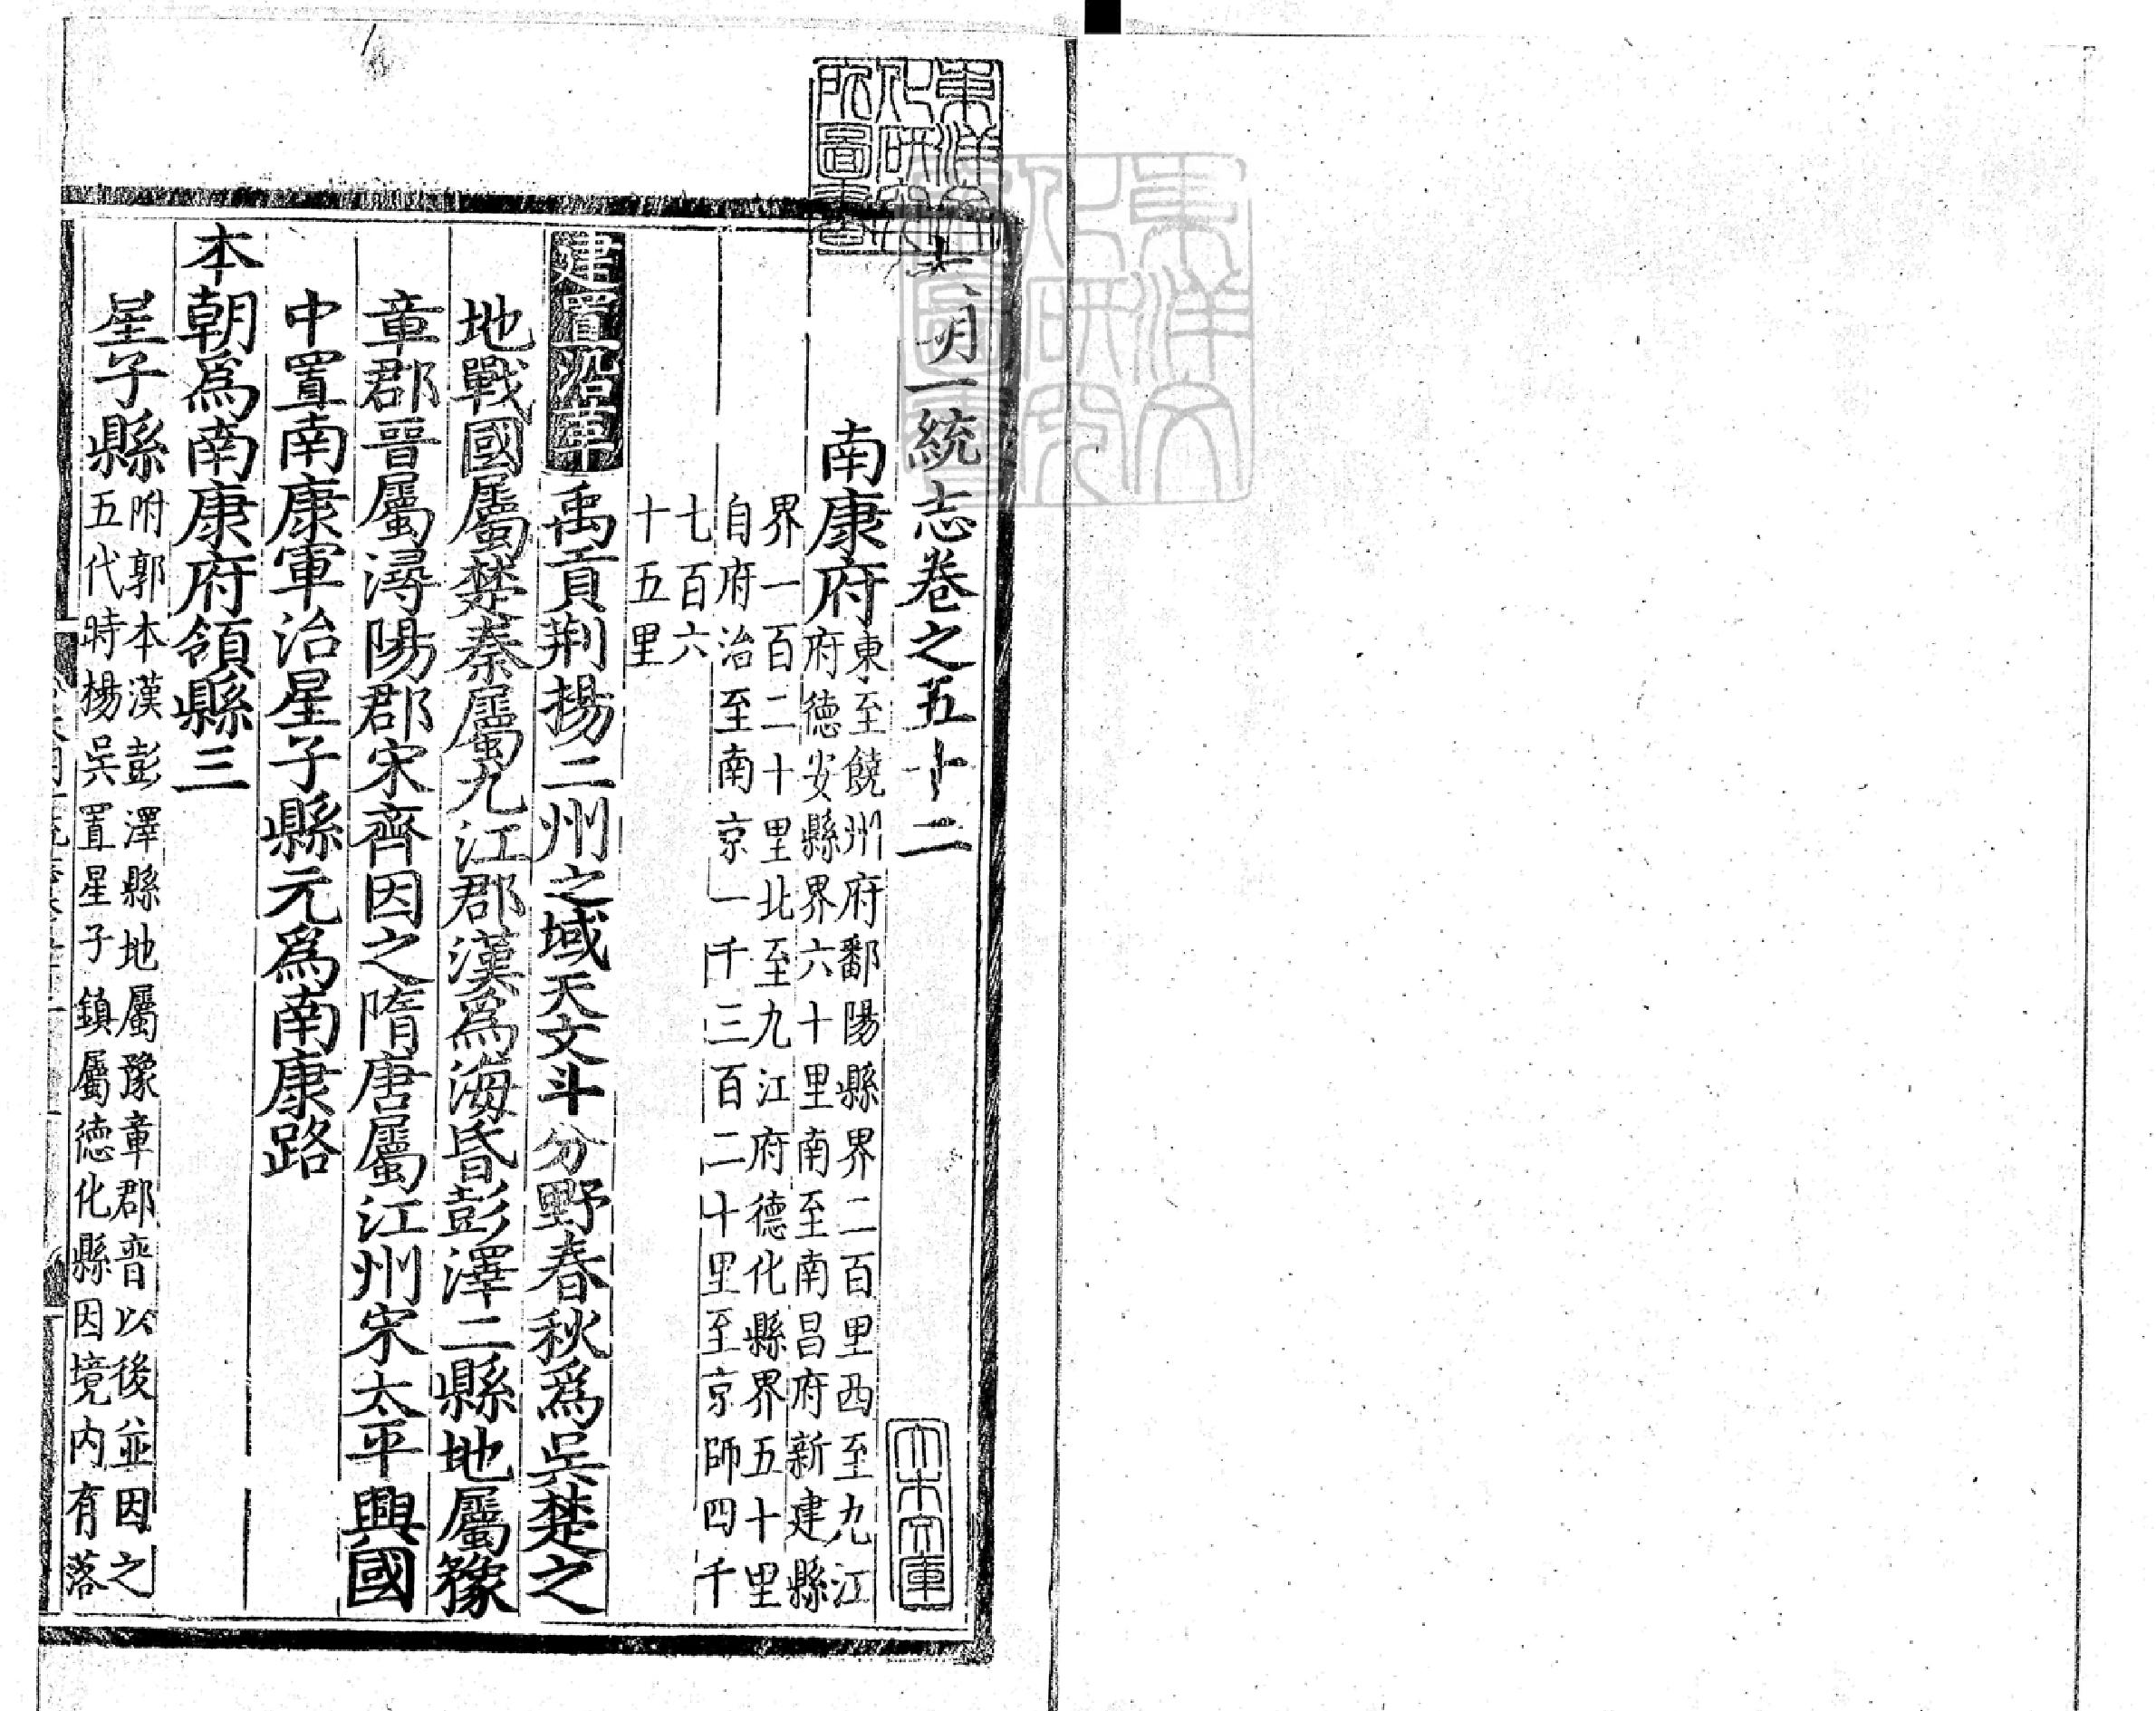 大明一統志卷之五十二
南康府
東至饒州府鄱陽縣界二百里西至九江
府德安縣界六十里南至南昌府新建縣
界一百二十里北至九江府德化縣界五十里
自府治至南京一千三百二十里至京師四千
七百六
十五里
建置沿革禹貢荆揚二州之域天文斗分野春秋爲吳楚之
地戰國屬楚秦屬九江郡漢爲海昏彭澤二縣地屬豫
章郡晉屬潯陽郡宋齊因之隋唐屬江州宋太平興國
中置南康軍治星子縣元爲南康路
本朝爲南康府領縣三
星子縣
附郭本漢彭澤縣地屬豫章郡晉以後並因之
五代時楊吳置星子鎮屬德化縣因境内有落
東洋文化研究所圖書
大木文庫